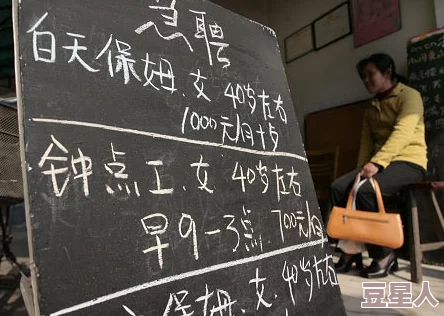 急聘
白天保姆.女 40岁左右
1000元/月
钟点工.女 40岁左右
早9-3点.700元/月
保姆.女.40岁左右
豆星人